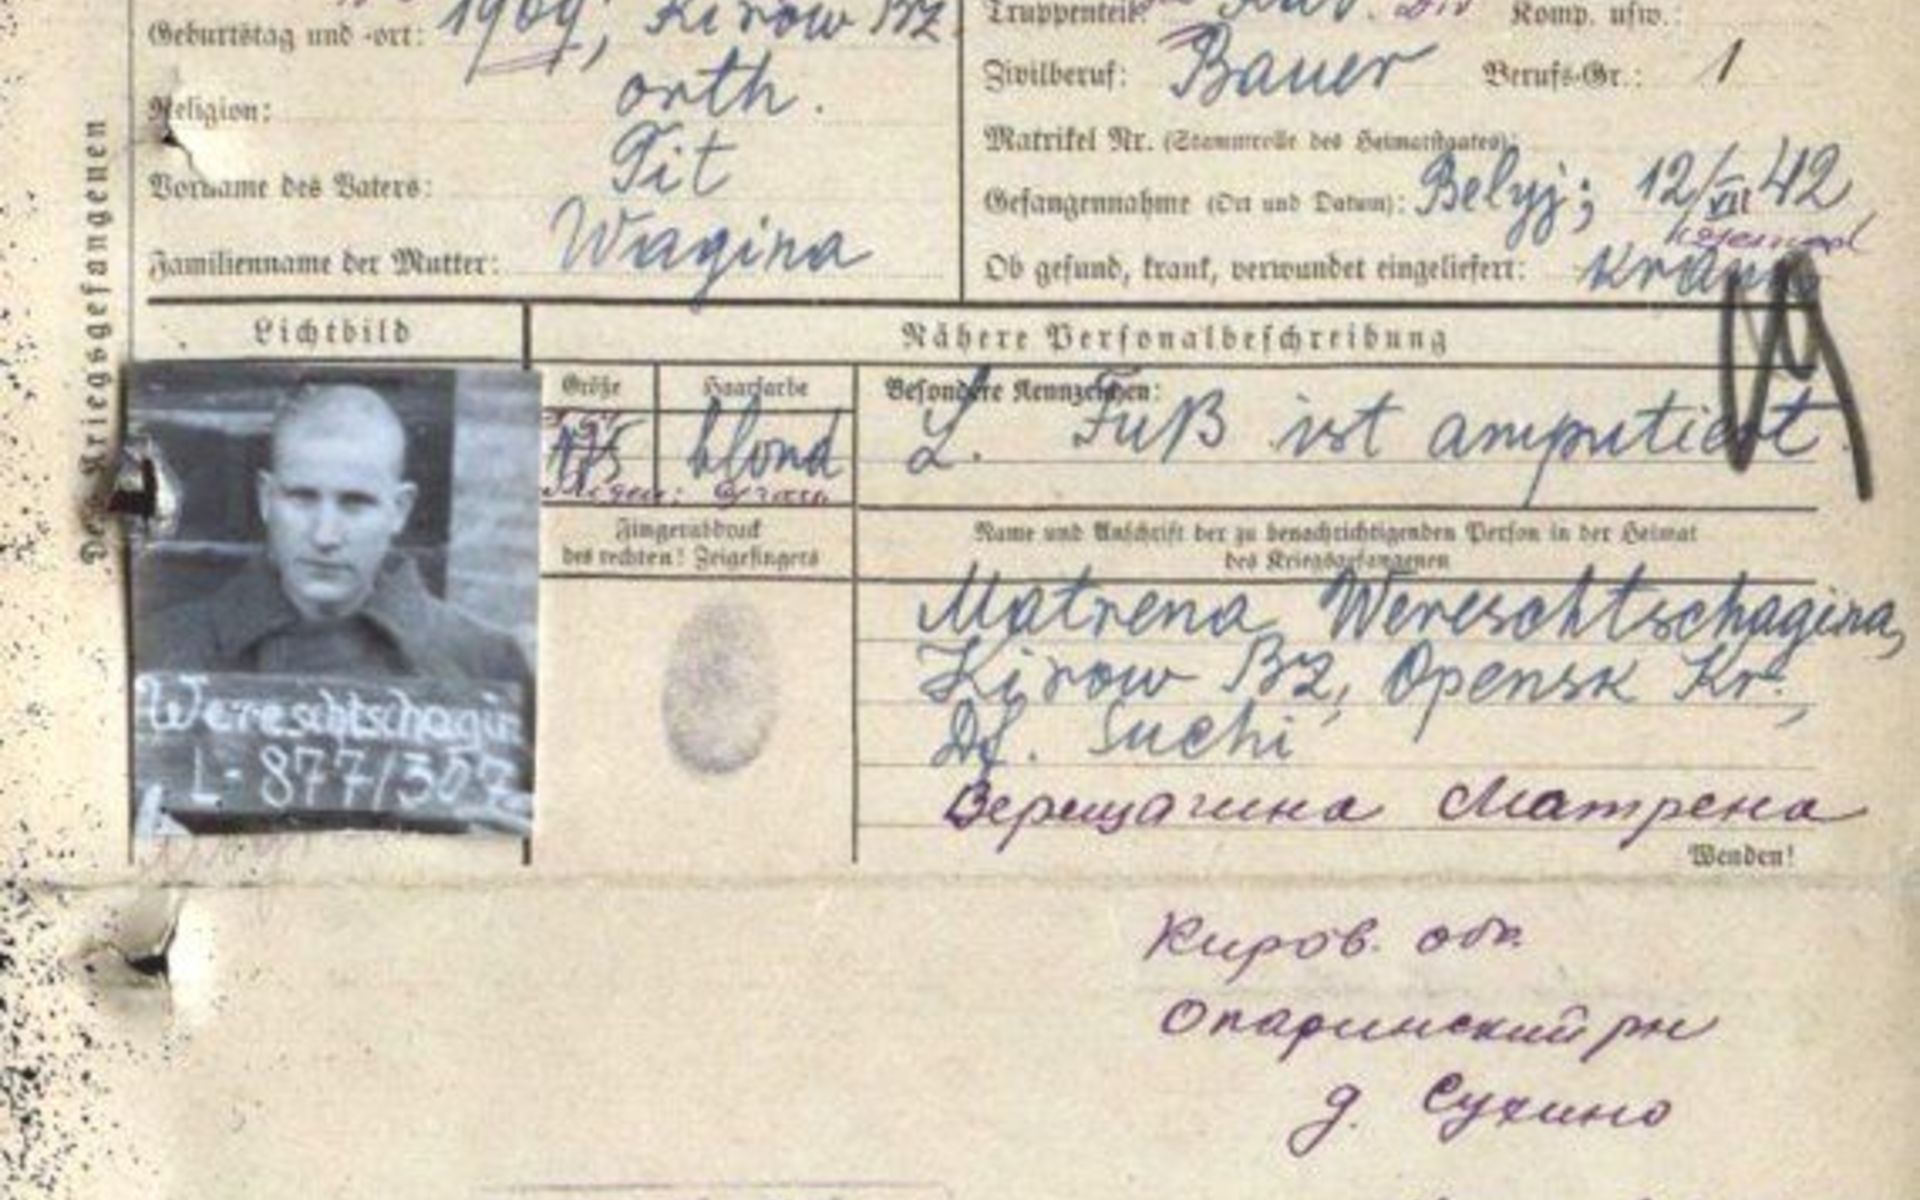 Geburtstag und -ort: 1909, Kirow Bz.
Religion: orth.
Vorname des Vaters: Tit
Familienname der Mutter: Wagina
Truppenteil: Kav. Div Komp. usw.:
Zivilberuf: Bauer Berufs-Gr.: 1
Matrikel Nr. (Stammrolle des Heimatstaates):
Gefangennahme (Ort und Datum): Belyj; 12/VII 42
Ob gesund, krank, verwundet eingeliefert: krank
Des Kriegsgefangenen
Lichtbild
Nähere Personalbeschreibung
Größe
175
Haarfarbe
blond
Augen: Grau
Besondere Kennzeichen:
L. Fuß ist amputiert
Fingerabdruck
des rechten! Zeigefingers
Name und Anschrift der zu benachrichtigenden Person in der Heimat
des Kriegsgefangenen
Matrena Wereschtschagina,
Kirow Bz, Opensk Kr.,
Df. Suchi
Верещагина Матрена
Wenden!
Wereschtschagin
L-877/307
Киров. обл.
Опаринский рн
д. Сухино